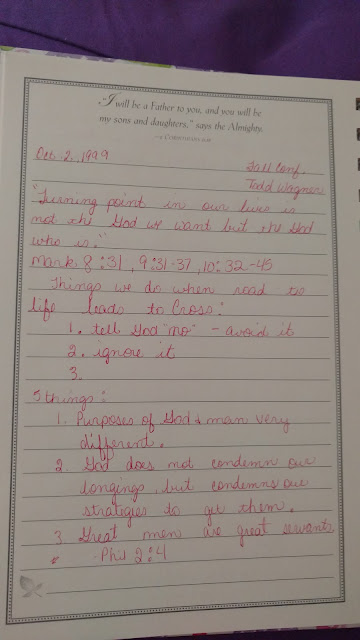 "I will be a Father to you, and you will be
my sons and daughters," says the Almighty.
Oct. 2, 1999
Fall Conf.
Todd Wagner
"Turning point in our lives is
not the God we want but the God
who is."
Mark 8:31, 9:31-37, 10:32-45
Things we do when road to
life leads to Cross:
1. tell God "no" - avoid it
2. ignore it
3.
5 things:
1. Purposes of God & man very
different.
2. God does not condemn our
longings, but condemns our
stratigies to get them.
3 Great men are great servants
Phil 2:4